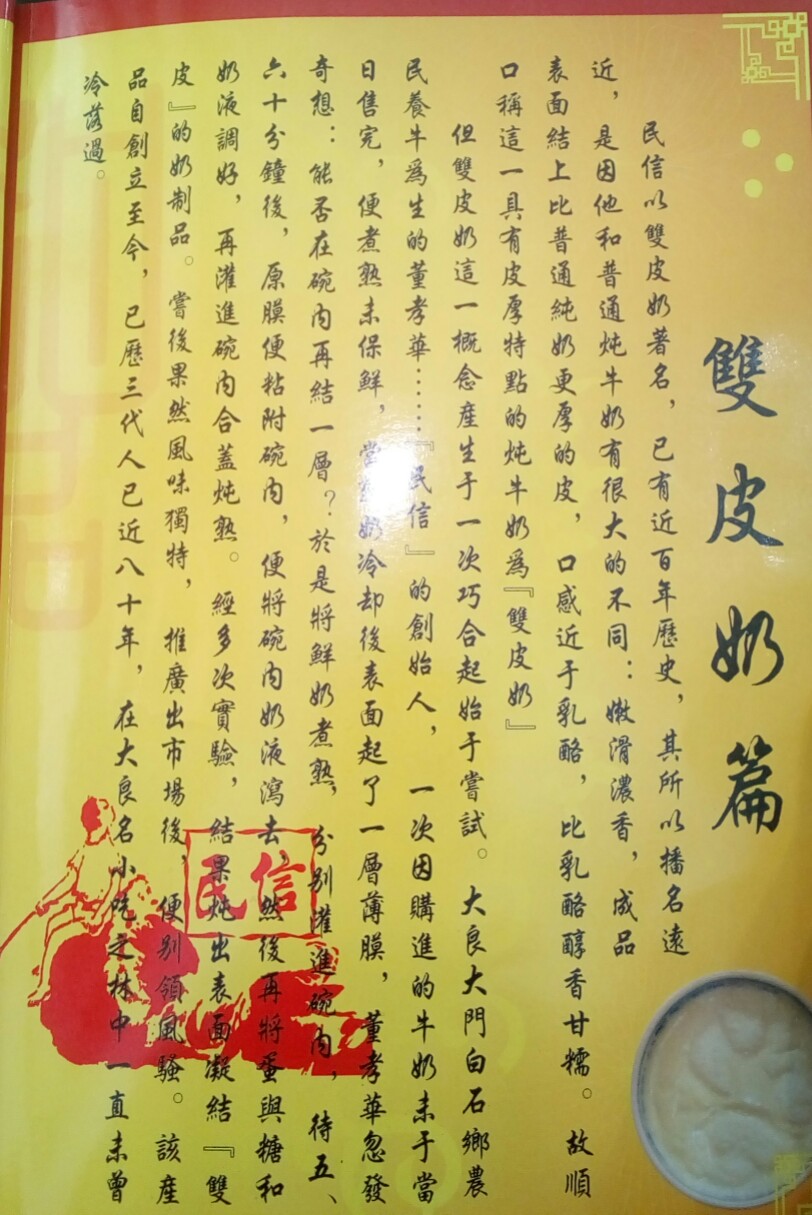 雙皮奶篇
民信以雙皮奶著名，已有近百年歷史，其所以播名遠
近，是因他和普通炖牛奶有很大的不同：嫩滑濃香，成品
表面結上比普通純奶更厚的皮，口感近于乳酪，比乳酪醇香甘糯。故順
口稱這一具有皮厚特點的炖牛奶爲『雙皮奶』
但雙皮奶這一概念産生于一次巧合起始于嘗試。大良大門白石鄉農
民養牛爲生的董孝華……『民信』的創始人，一次因購進的牛奶未于當
日售完，便煮熟未保鮮，當奶冷却後表面起了一層薄膜，董孝華忽發
奇想：能否在碗内再結一層？於是將鮮奶煮熟，分别灌進碗内，待五、
六十分鐘後，原膜便粘附碗内，便將碗内奶液瀉去，然後再將蛋與糖和
奶液調好，再灌進碗内合蓋炖熟。經多次實驗，結果炖出表面凝結『雙
皮』的奶制品。嘗後果然風味獨特，推廣出市場後，便别領風騷。該産
品自創立至今，已歷三代人已近八十年，在大良名小吃之林中一直未曾
冷落過。
民信